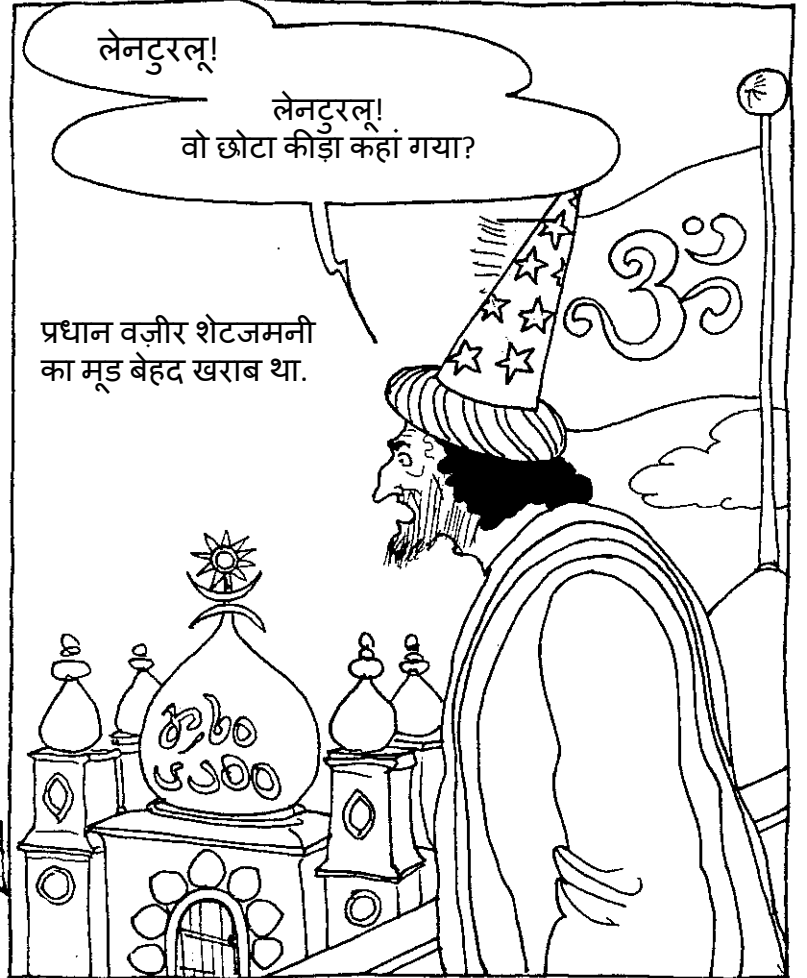 लेनटुरलू!
लेनटुरलू!
वो छोटा कीड़ा कहां गया?
प्रधान वज़ीर शेटजमनी
का मूड बेहद खराब था.
ॐ